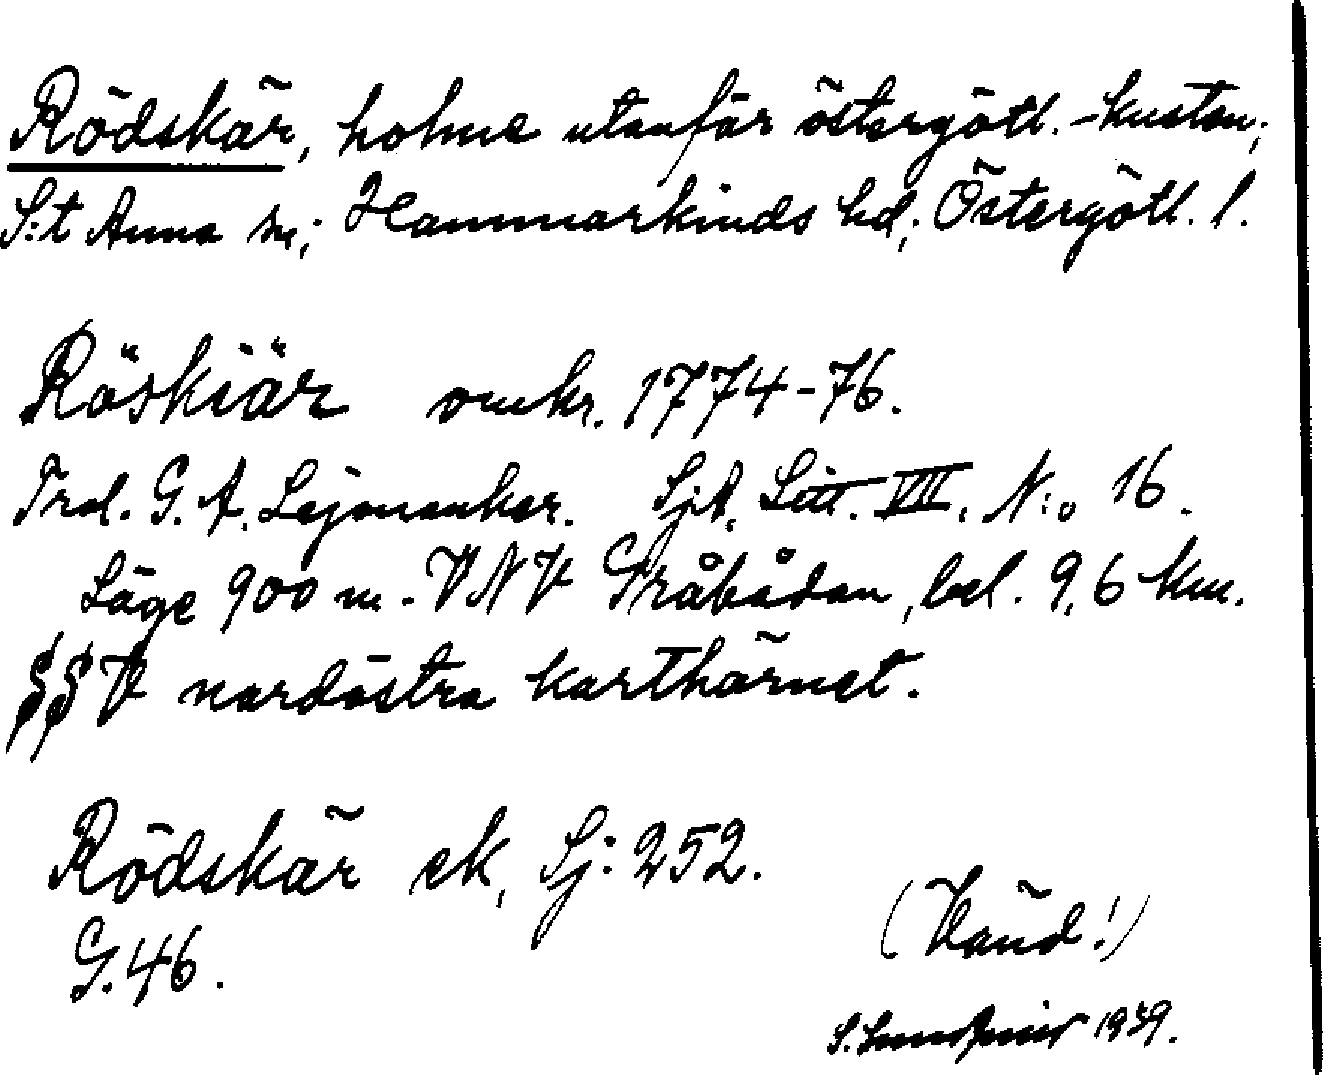 Rödskär, holme utanför östergötl.-kusten;
S:t Anna sn; Hammarkinds hd; Östergötl. l.
Röskiär omkr. 1774-76.
Trol. G. A. Lejonanker. Sjk. Litt. VII. N:o 16.
Läge 900 m. VNV Gråbådan, bel. 9,6 km.
§§ V nordöstra karthörnet.
Rödskär ek, Sj: 252.
G. 46.
(Vänd!)
S. 1939.